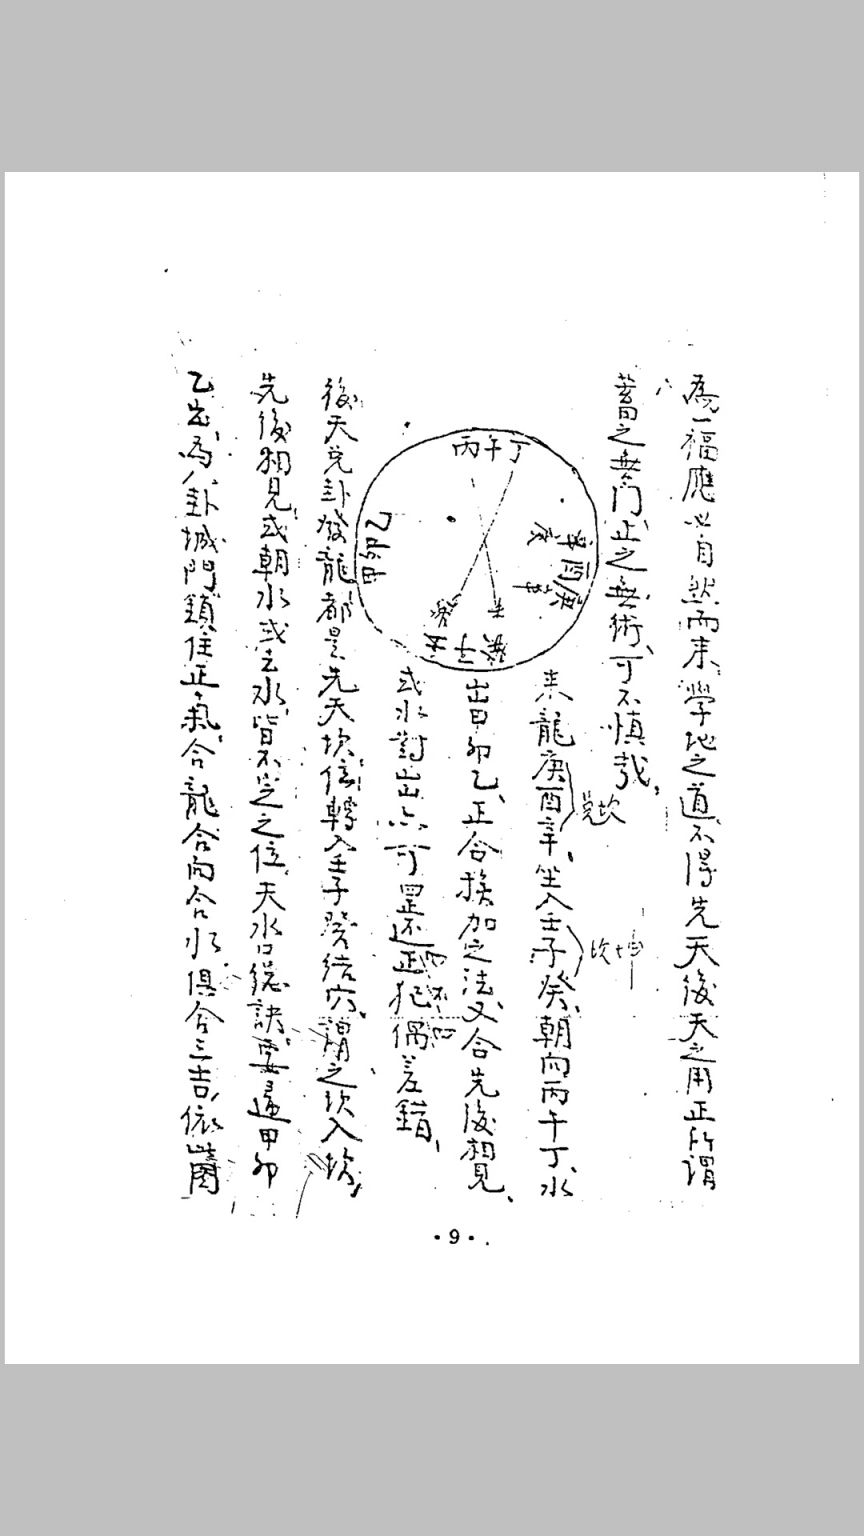 為一福應必自然而來、學地之道、不得先天後天之用正所謂
蓄之無門、止之無術、可不慎哉、
丙午丁
乙卯甲
來龍庚酉辛、坐入壬子癸、朝向丙午丁、水
兌坎
坎坤
出甲卯乙、正合挨加之法、又合先後相見、
或水對出亦可罡还正犯偶差錯、
後天兌卦發龍、都是先天坎位、轉入壬子癸結穴、謂之坎入坎、
先後相見、或朝水或去水、皆不之位、天水口總訣、要逼甲卯
乙出、為八卦城門鎖住正氣、合龍合向合水、俱合三吉、依圖
·9·